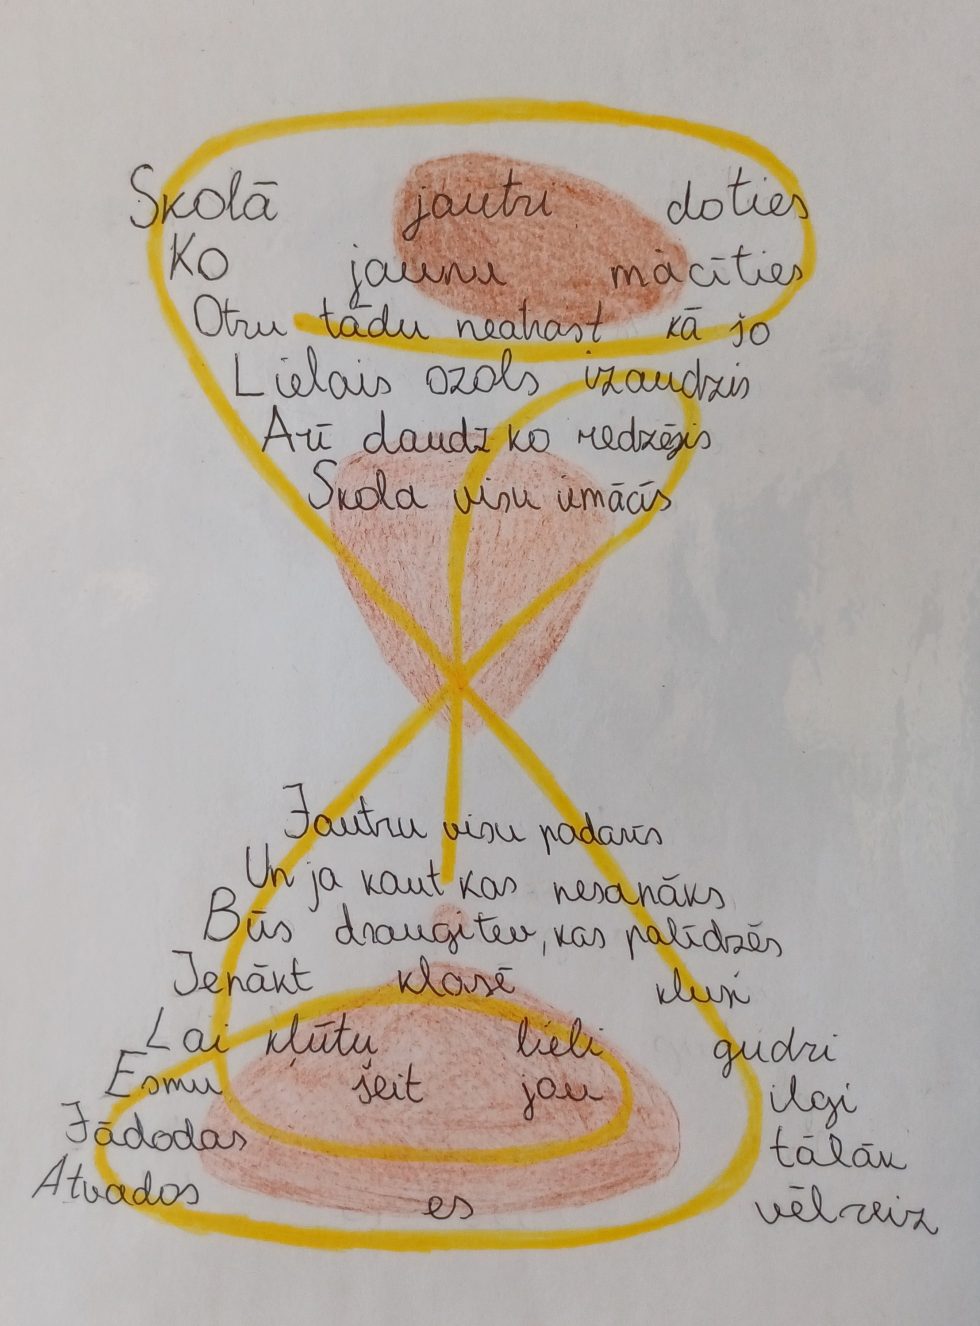 Skolā jautri doties
Ko jaunu mācīties
Otru tādu neatrast kā šo
Lielais ozols izaudzis
Arī daudz ko redzējis
Skola visu iemācīs
Jautru visu padarīs
Un ja kaut kas nesanāks
Būs draugi tev, kas palīdzēs
Ienākt klasē klusi
Lai kļūtu lieli gudri
Esmu šeit jau ilgi
Jādodas tālāk
Atvados es vēlreiz